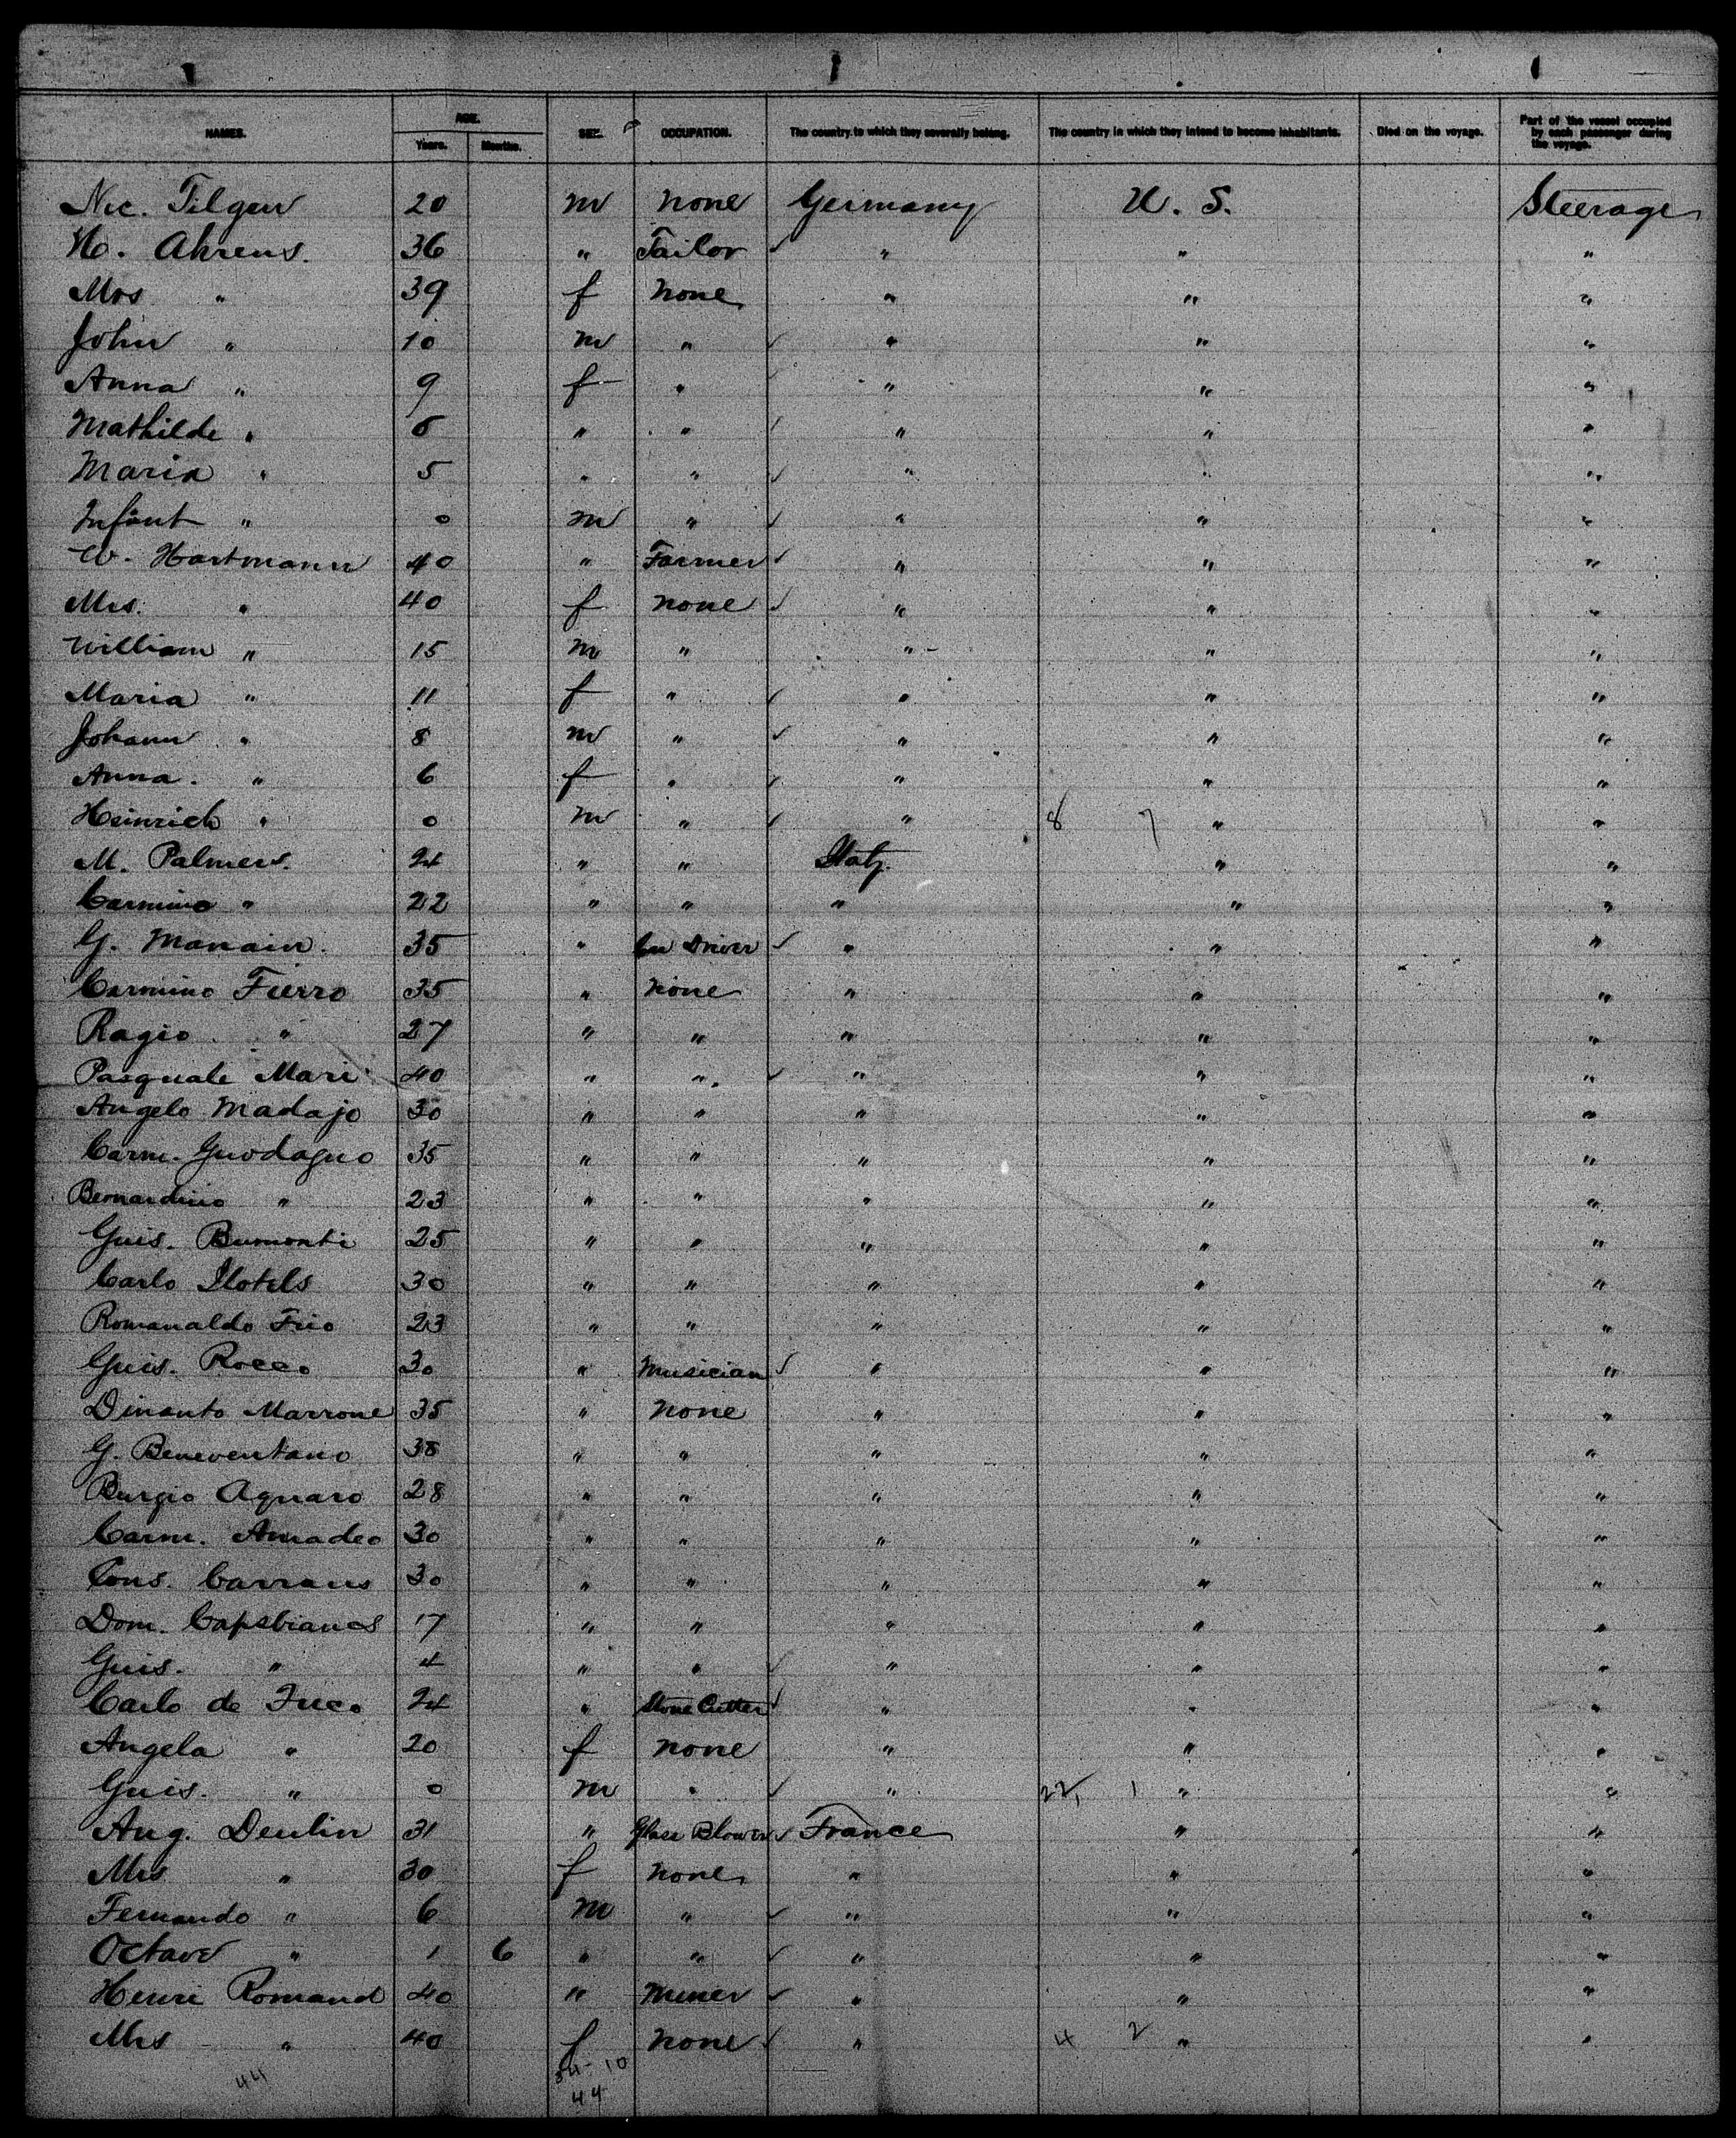 NAMES. AGE. Years. Months. SEX. OCCUPATION. The country to which they severally belong. The country in which they intend to become inhabitants. Died on the voyage. Part of the vessel occupied by each passenger during the voyage.
Nic. Tilgen 20 m none Germany U. S. Steerage
H. Ahrens. 36 " Tailor " " "
Mrs " 39 f none " " "
John " 10 m " " " "
Anna " 9 f " " " "
Mathilde " 6 " " " " "
Maria " 5 " " " " "
Infant " 0 m " " " "
W. Hartmann 40 " Farmer " " "
Mrs. " 40 f none " " "
William " 15 m " " " "
Maria " 11 f " " " "
Johann " 8 m " " " "
Anna. " 6 f " " " "
Heinrich " 0 m " " 8 7 " "
M. Palmers. 24 " " Italy. " "
Carmino " 22 " " " " "
G. Manain. 35 " Driver " " "
Carmino Fierro 35 " none " " "
Ragio " 27 " " " " "
Pasquale Mari 40 " " " " "
Angelo Madajo 30 " " " " "
Carm. Guodagno 35 " " " " "
Bernardino " 23 " " " " "
Guis. Bumonti 25 " " " " "
Carlo 30 " " " " "
Romanaldo Frio 23 " " " " "
Guis. Rocco 30 " Musician " " "
Dinanto Marrone 35 " none " " "
G. Beneventano 38 " " " " "
Burgio Agnaro 28 " " " " "
Carm. Amadeo 30 " " " " "
Cons. Carrans 30 " " " " "
Dom. Capobianco 17 " " " " "
Guis. " 4 " " " " "
Carlo de Fuco 24 " Stone Cutter " " "
Angela " 20 f none " " "
Guis. " 0 m " " 22, 1 " "
Aug. Deulin 31 " Glass Blower France " "
Mrs " 30 f none " " "
Fernando " 6 m " " " "
Octave " 1 6 " " " " "
Henri Romand 40 " Miner " " "
Mrs " 40 f none " 4 2 " "
44 34-10
44